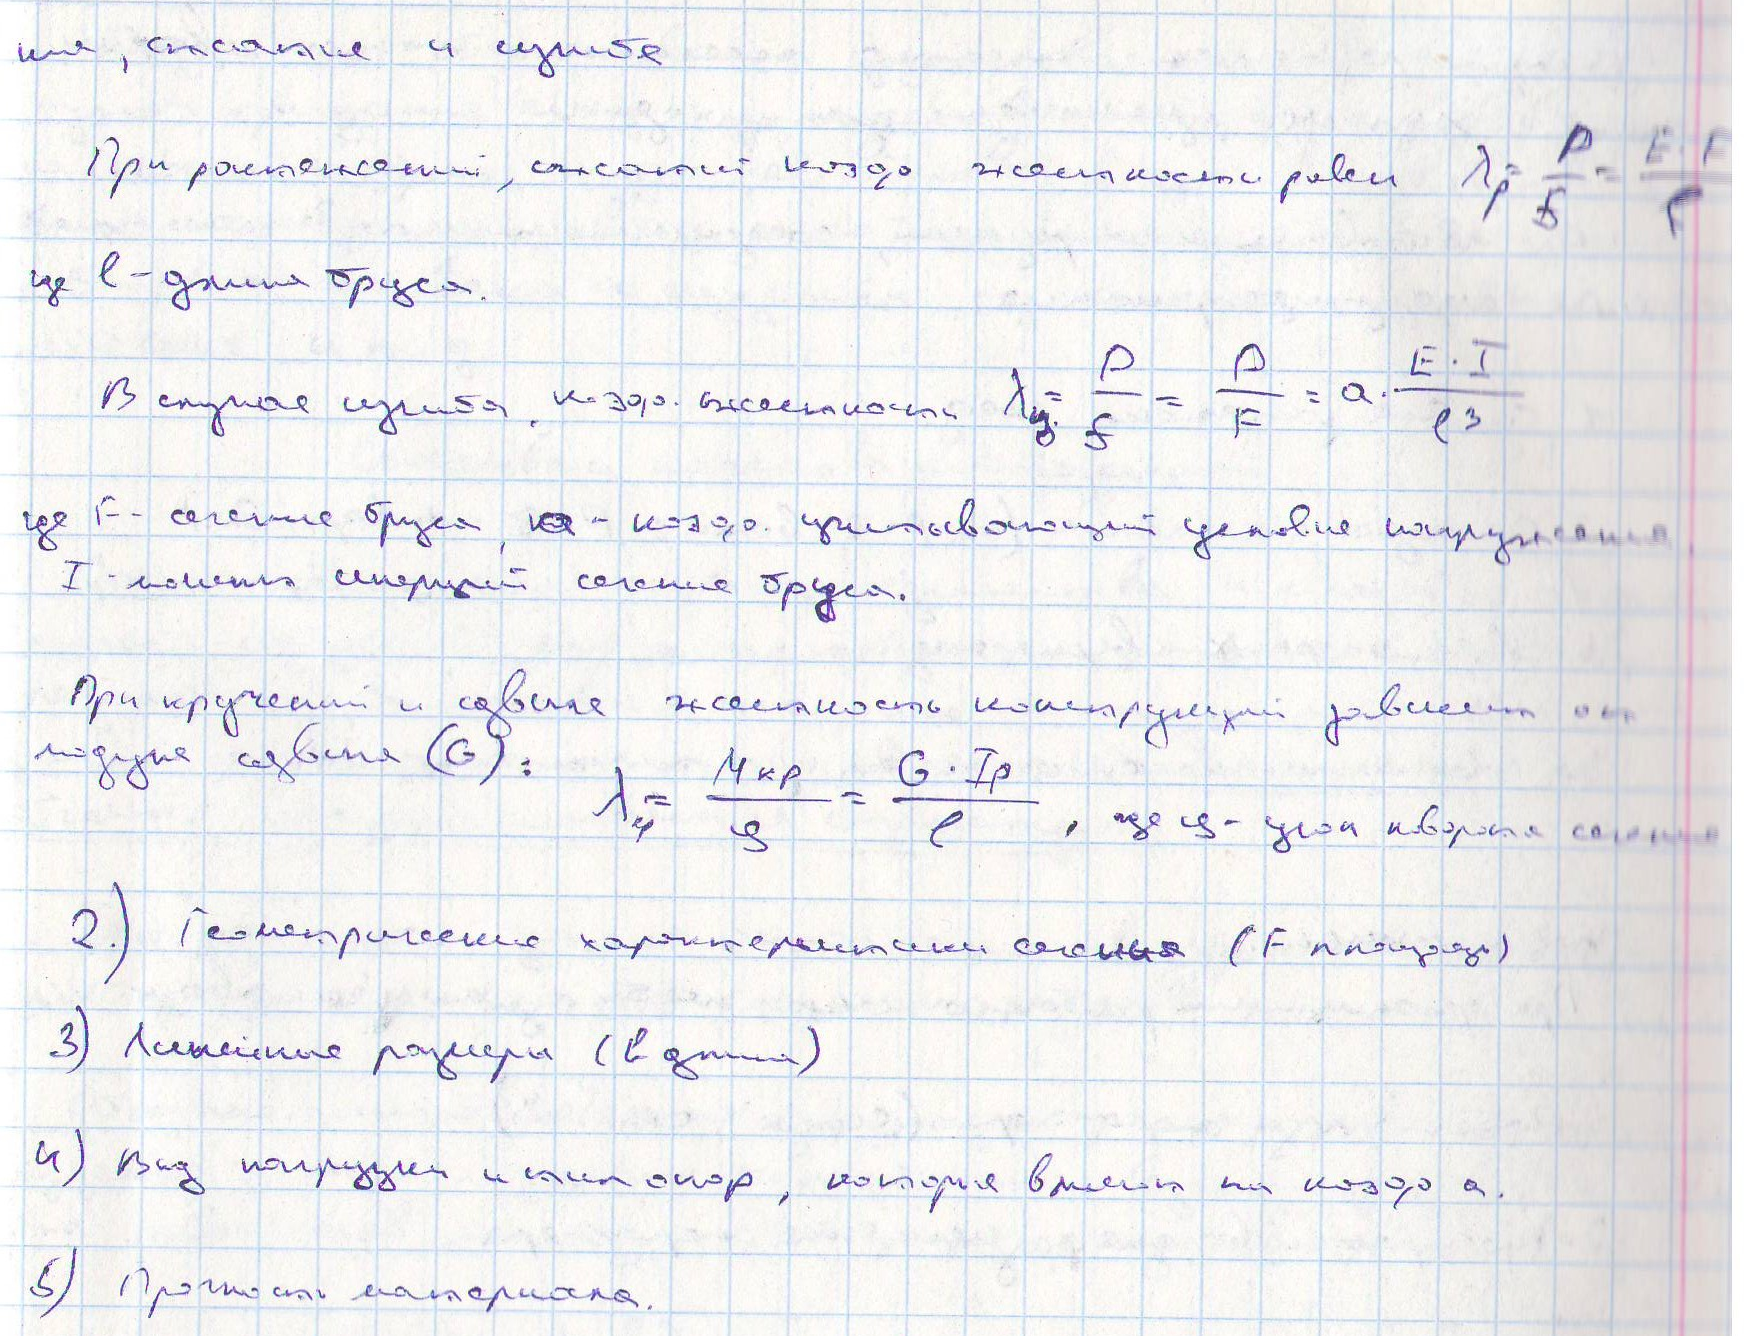 ния, сжатие и изгибе
При растяжений, сжатий коэф жесткости равен λр = P/f = E·F/l
где l - длина бруса.
В случае изгиба, коэф. жесткости λиз. = P/f = P/F = a · E·I/l³
где F - сечение бруса, a - коэф. учитывающий условие нагружения,
I - момент инерций сечение бруса.
При кручений и сдвиге жесткость конструкций зависит от
модуля сдвига (G):
λφ = Mкр/φ = G·Ip/l , где φ - угол поворота сечения
2.) Геометрические характеристики сечения (F площадь)
3) Линейные размеры (l длина)
4) Вид нагрузки и тип опор, которые влияет на коэф a.
5) Прочность материала.